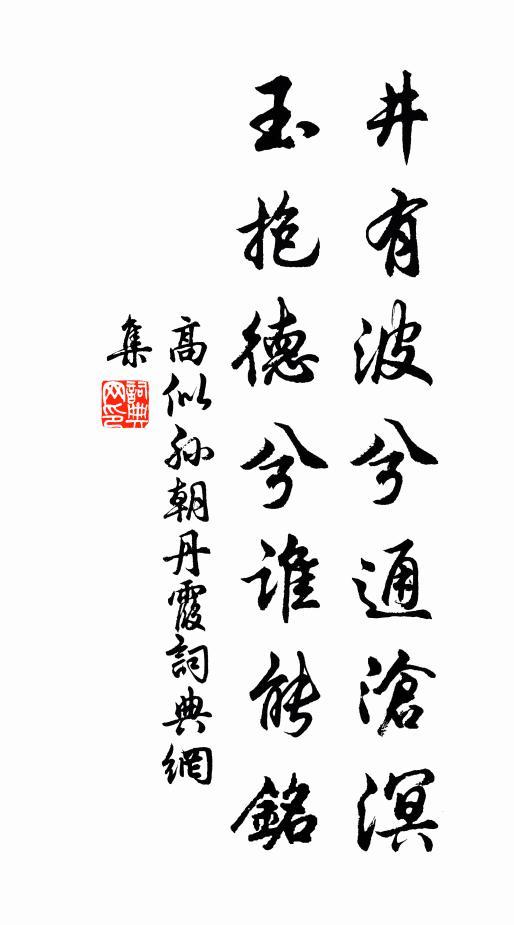 井有波兮通滄溟
玉抱德兮谁能銘
高似孙朝丹霞詞典網
集
詞典网印